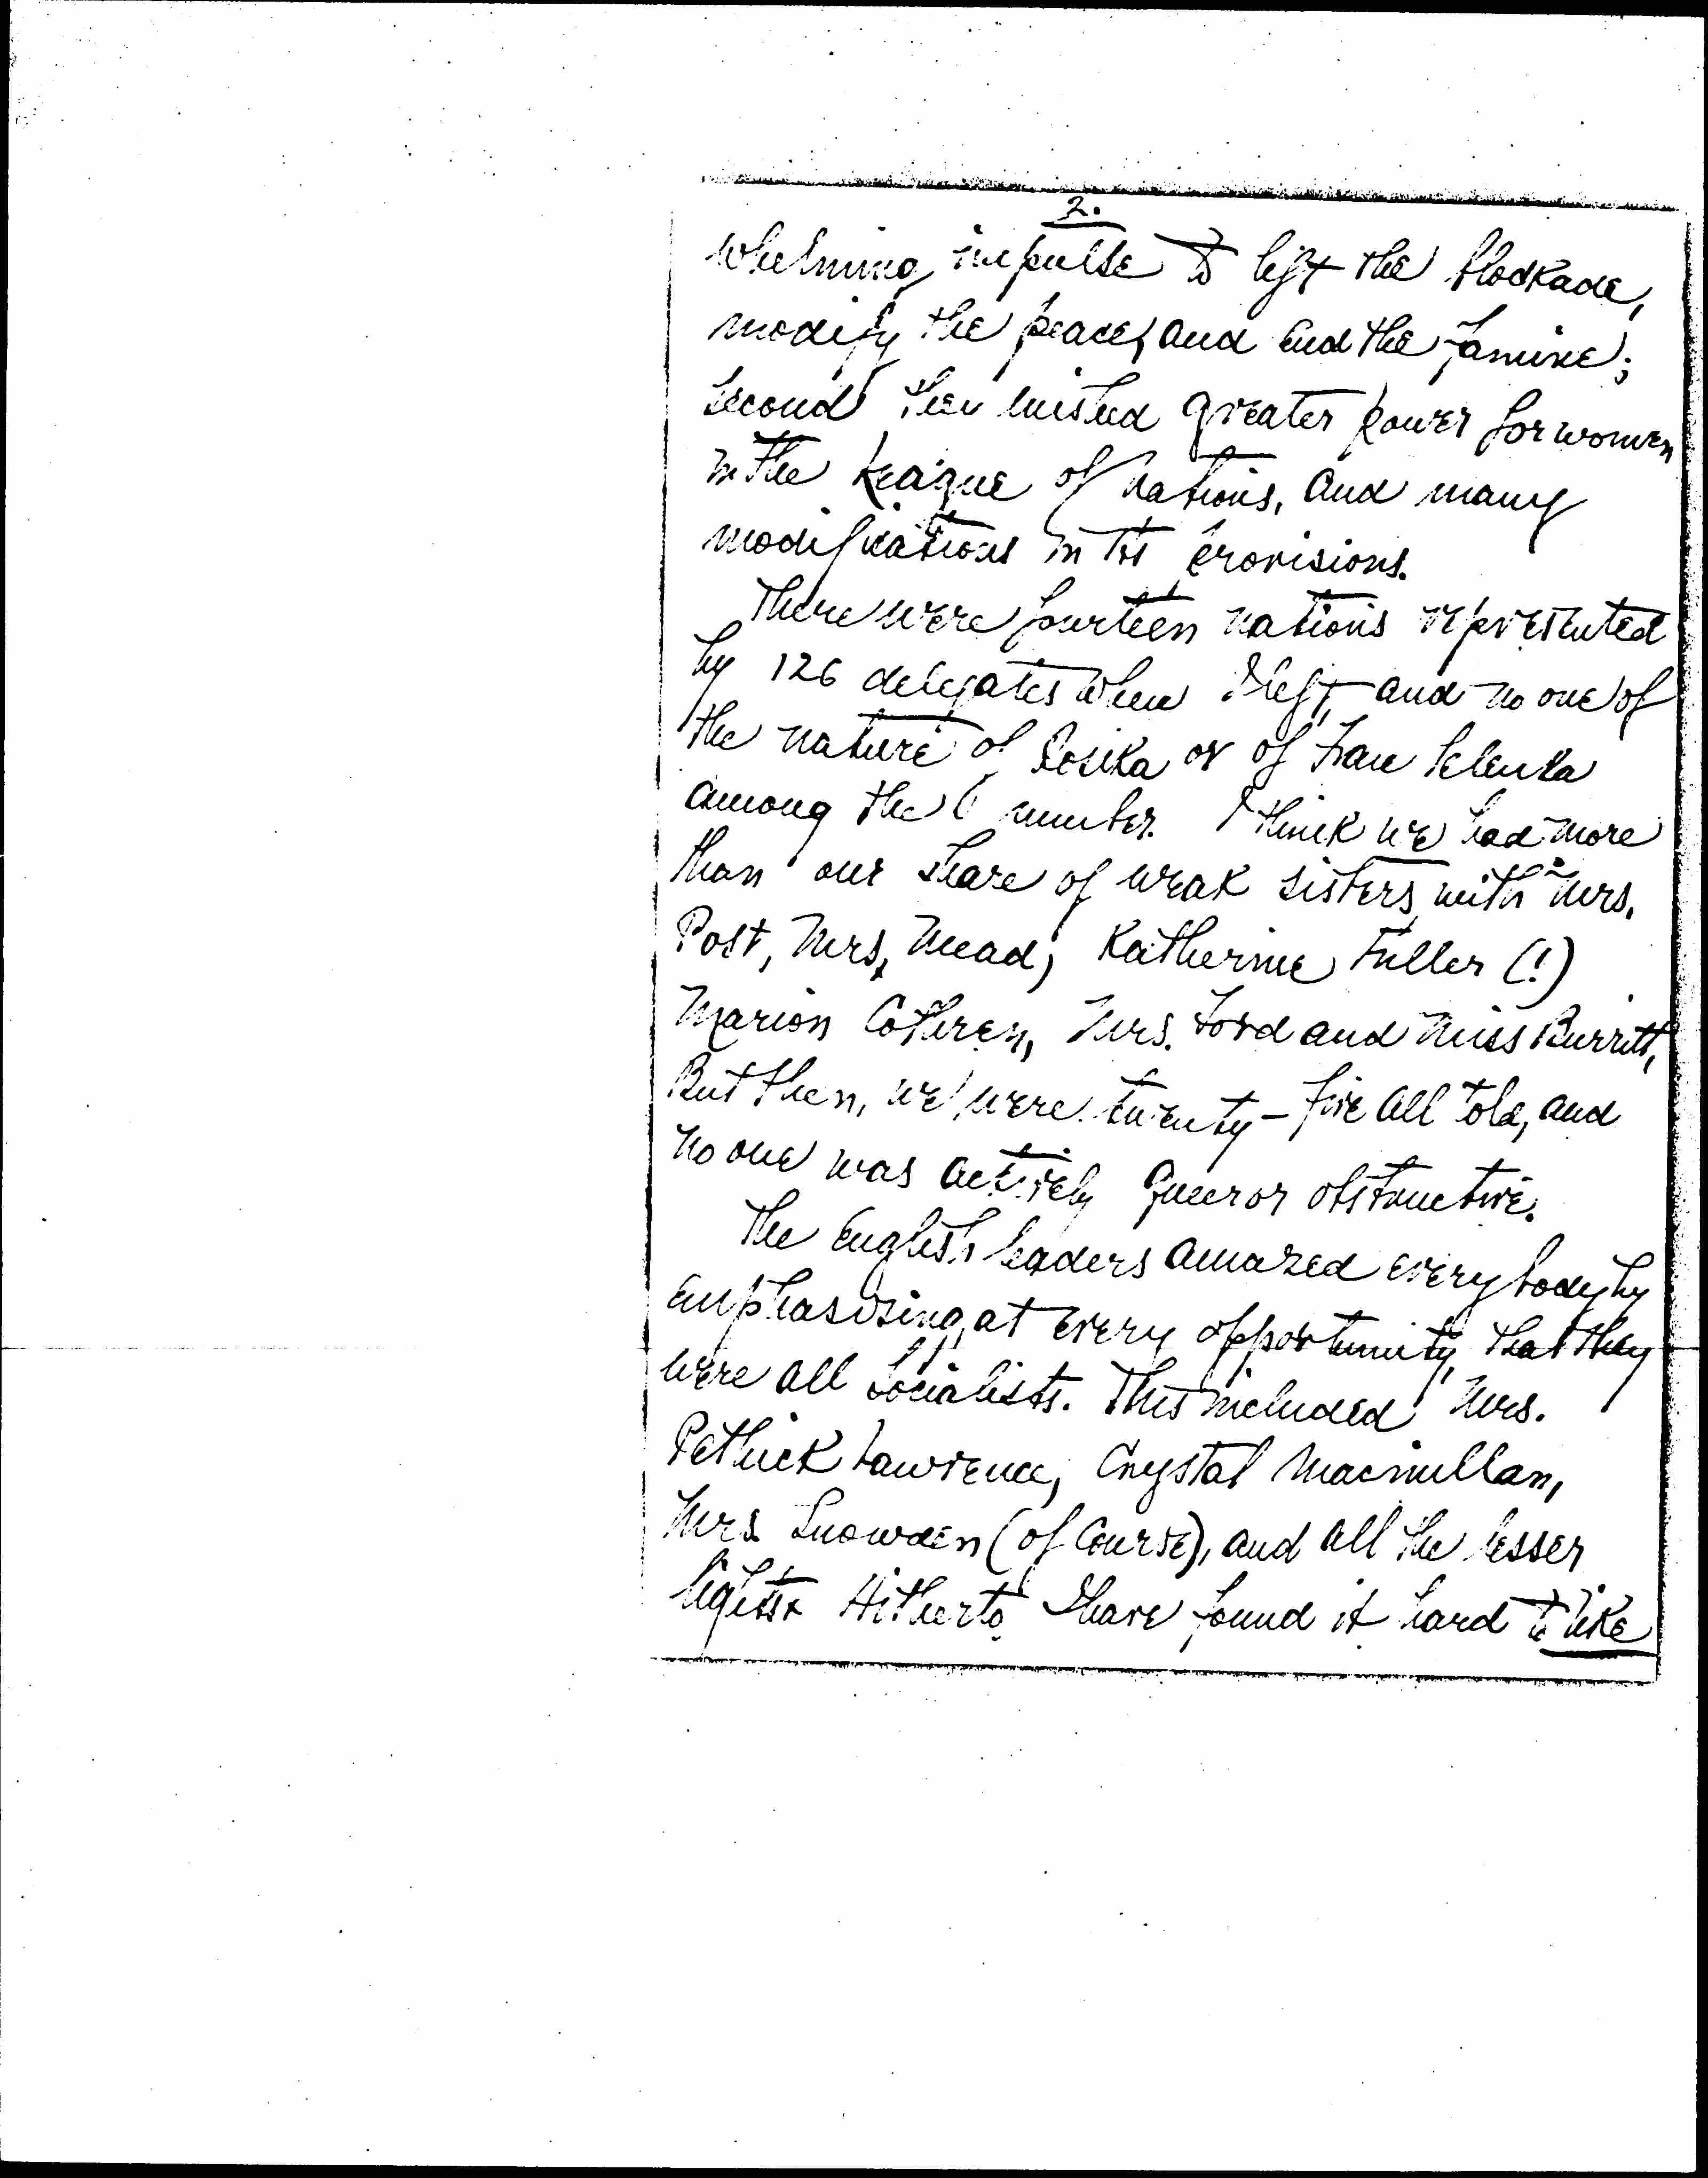 2.
whelming impulse to lift the blockade,
modify the peace, and end the famine;
second they wished greater power for women
in the League of Nations, and many
modifications in its provisions.
There were fourteen nations represented
by 126 delegates when I left, and no one of
the nature of Rosika or of Frau Selenka
among the number. I think we had more
than our share of weak sisters with Mrs.
Post, Mrs. Mead, Katherine Fuller (!)
Marion Cothren, Mrs. Ford and Miss Burritt,
But then, we were twenty-five all told, and
no one was actively queer or obstructive.
The English leaders amazed everybody by
emphasising, at every opportunity, that they
were all Socialists. This included Mrs.
Pethick Lawrence, Crystal Macmillan,
Mrs. Snowden (of course), and all the lesser
lights. Hitherto I have found it hard to like